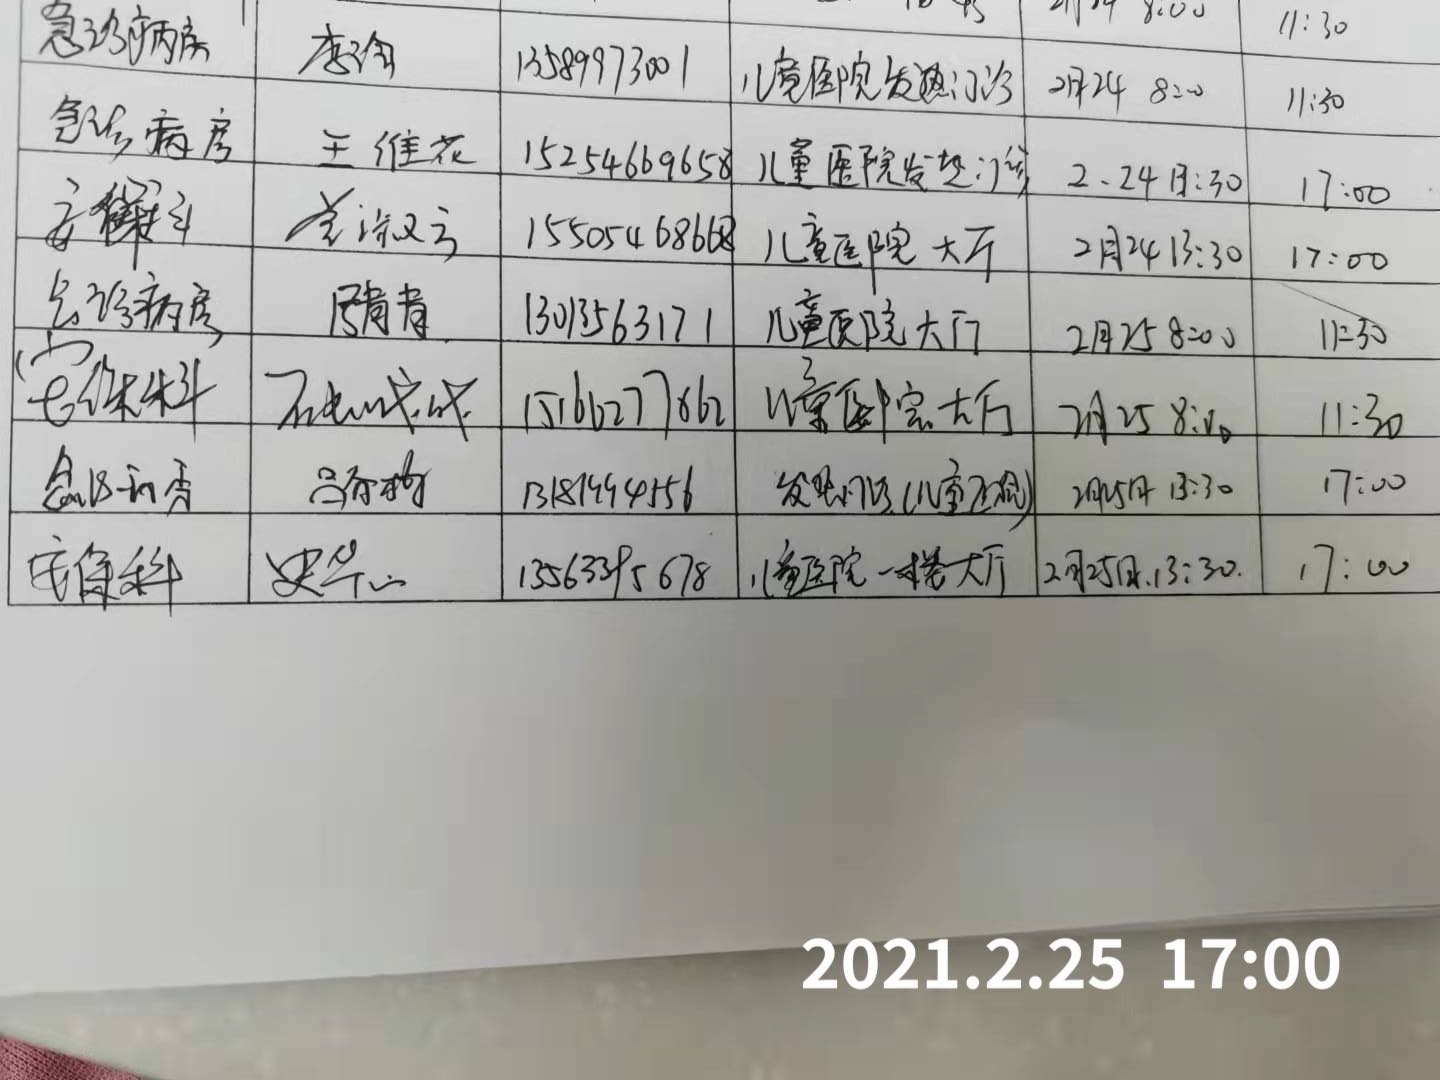 2月24 8:00 11:30
急诊病房 李 13589973001 儿童医院发热门诊 2月24 8:00 11:30
急诊病房 王维花 15254669658 儿童医院发热门诊 2.24 13:30 17:00
15505468668 儿童医院大厅 2月24 13:30 17:00
急诊病房 青青 13013563171 儿童医院大厅 2月25 8:00 11:30
科 15166277862 儿童医院大厅 2月25 8:00 11:30
急诊病房 吕 13181994556 发热门诊(儿童医院) 2月25日 13:30 17:00
科 史华 13563395678 儿童医院一楼大厅 2月25日.13:30. 17:00
2021.2.25 17:00